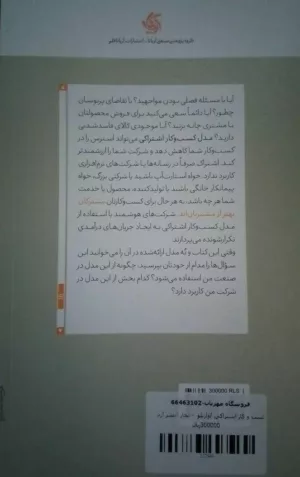 آیا با مسئله فصلی بودن مواجهید؟ با تقاضای پرنوسان
چطور؟ آیا دائماً سعی می‌کنید برای فروش محصولتان
با مشتری چانه بزنید؟ آیا موجودی کالای فاسدشدنی
دارید؟ مدل کسب‌وکار اشتراکی می‌تواند استرس را در
کسب‌وکار شما کاهش دهد و شرکت شما را ارزشمندتر
کند. اشتراک صرفاً در رسانه‌ها یا شرکت‌های نرم‌افزاری
کاربرد ندارد. خواه استارت‌آپ باشید یا شرکتی بزرگ، خواه
پیمانکار خانگی باشید یا تولیدکننده، محصول یا خدمت
شما هر چه باشد، به هر حال برای کسب‌وکارتان مشترکان
بهتر از مشتریان‌اند. شرکت‌های هوشمند با استفاده از
مدل کسب‌وکار اشتراکی به ایجاد جریان‌های درآمدی
تکرارشونده می‌پردازند.
وقتی این کتاب و نُه مدل ارائه‌شده در آن را می‌خوانید این
سؤال‌ها را مدام از خودتان بپرسید: چگونه از این مدل در
صنعت من استفاده می‌شود؟ کدام بخش از این مدل در
شرکت من کاربرد دارد؟
300000 RLS
فروشگاه مهربان-66463102
300000ریال